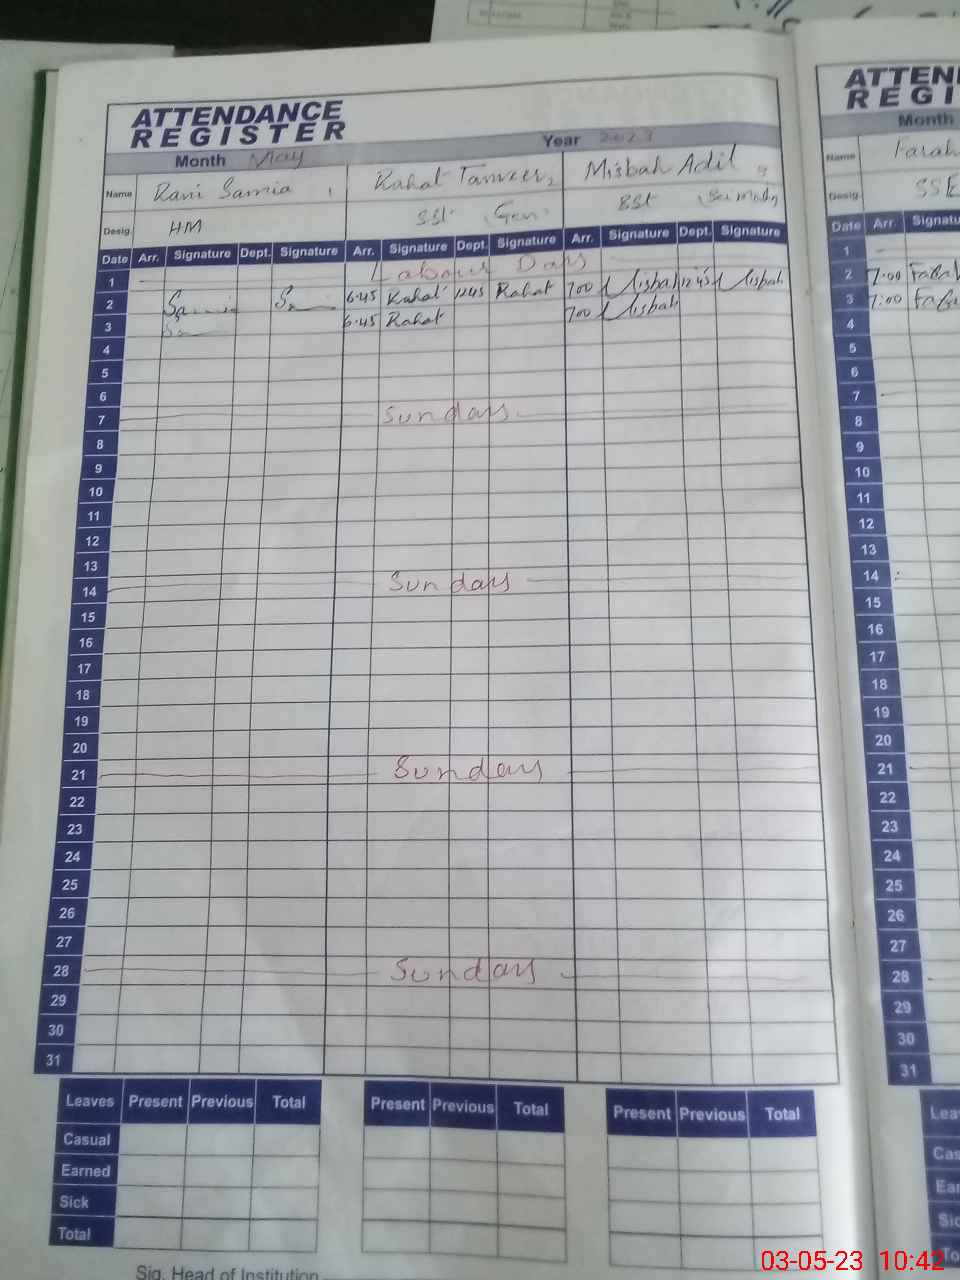 ATTENDANCE
REGISTER
Month May Year 2023
Name Rani Samia Rahat Tanveer Misbah Adil
Desig. HM SSt (Gen) SSt
Date Arr. Signature Dept. Signature Arr. Signature Dept. Signature Arr. Signature Dept. Signature
1 Labour Day
2 6.45 Rahat 1245 Rahat 700 Misbah 1245 Misbah
3 6.45 Rahat 700 Misbah
4
5
6
7 Sunday
8
9
10
11
12
13
14 Sunday
15
16
17
18
19
20
21 Sunday
22
23
24
25
26
27
28 Sunday
29
30
31
Leaves Present Previous Total Present Previous Total Present Previous Total
Casual
Earned
Sick
Total
Sig. Head of Institution
ATTEN
REGI
Month
Name Farah
Desig. SSE
Date Arr. Signatu
1
2 7:00
3 7:00
4
5
6
7
8
9
10
11
12
13
14
15
16
17
18
19
20
21
22
23
24
25
26
27
28
29
30
31
Lea
Cas
Ear
Sic
To
03-05-23 10:42